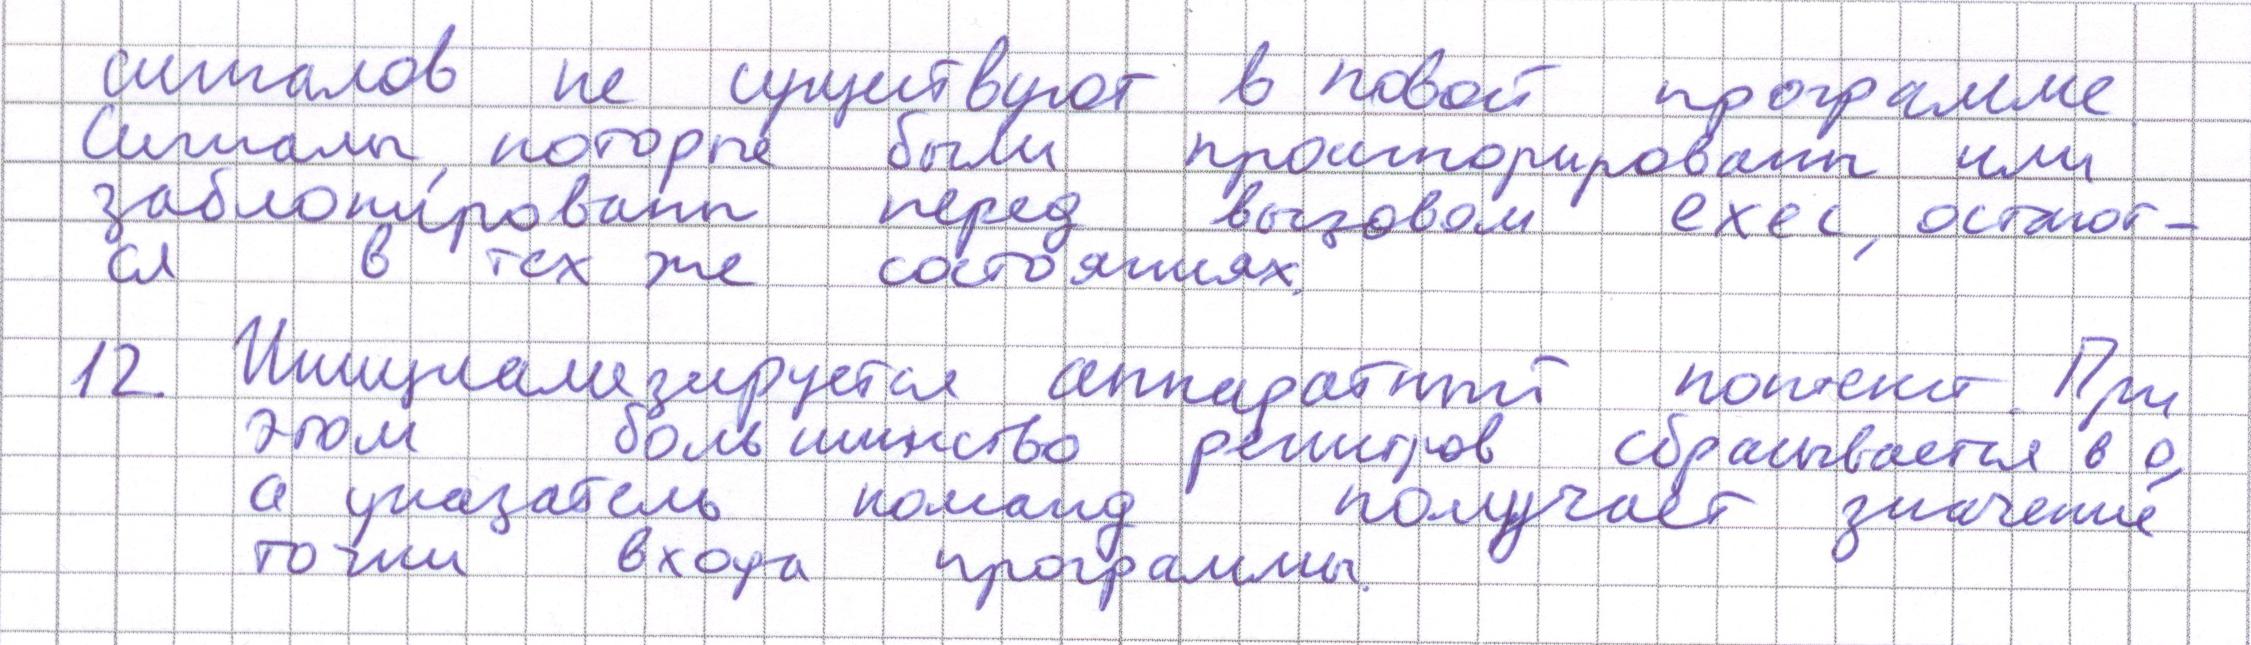 сигналов не существуют в новой программе.
Сигналы, которые были проигнорированы или
заблокированы перед вызовом exec, остают-
ся в тех же состояниях.
12. Инициализируется аппаратный контекст. При
этом большинство регистров сбрасывается в 0,
а указатель команд получает значение
точки входа программы.